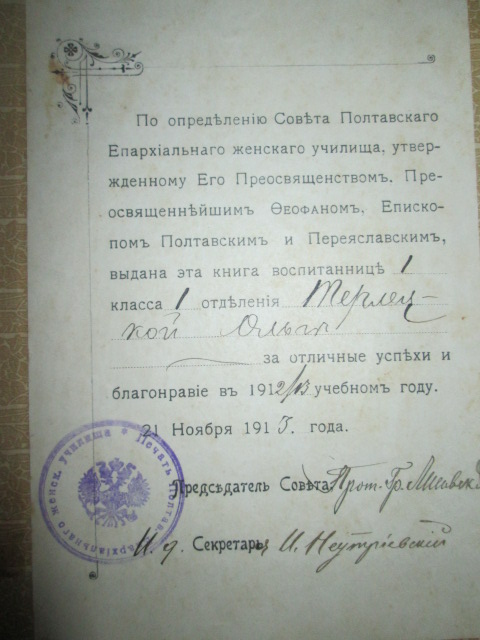 По опредѣленію Совѣта Полтавскаго
Епархіальнаго женскаго училища, утвер-
жденному Его Преосвященствомъ, Пре-
освященнѣйшимъ Ѳеофаномъ, Еписко-
помъ Полтавскимъ и Переяславскимъ,
выдана эта книга воспитанницѣ 1
класса 1 отдѣленія Терлец-
кой Ольгѣ
за отличные успѣхи и
благонравіе въ 1912/13 учебномъ году.
21 Ноября 1913 года.
Предсѣдатель Совѣта, Прот. Гр.
И. д. Секретаря И.
Печать Полтав. Епархіальнаго женск. училища